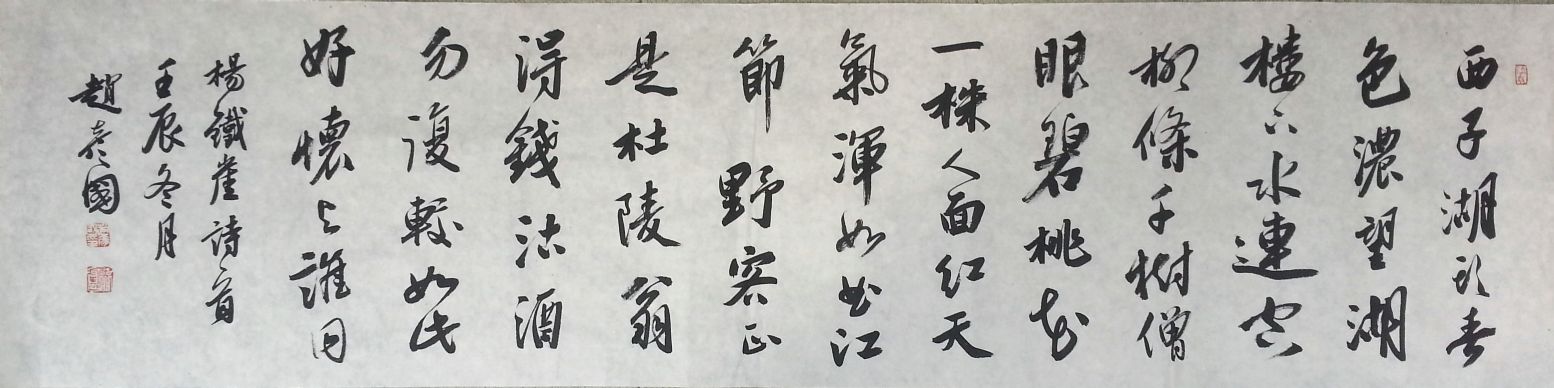 西子湖頭春
色濃望湖
樓下水連空
柳條千樹僧
眼碧桃花
一株人面紅天
氣渾如曲江
節野客正
是杜陵翁
得錢沽酒
勿復較如此
好懷與誰同
楊鐵崖詩首
壬辰冬月
趙國